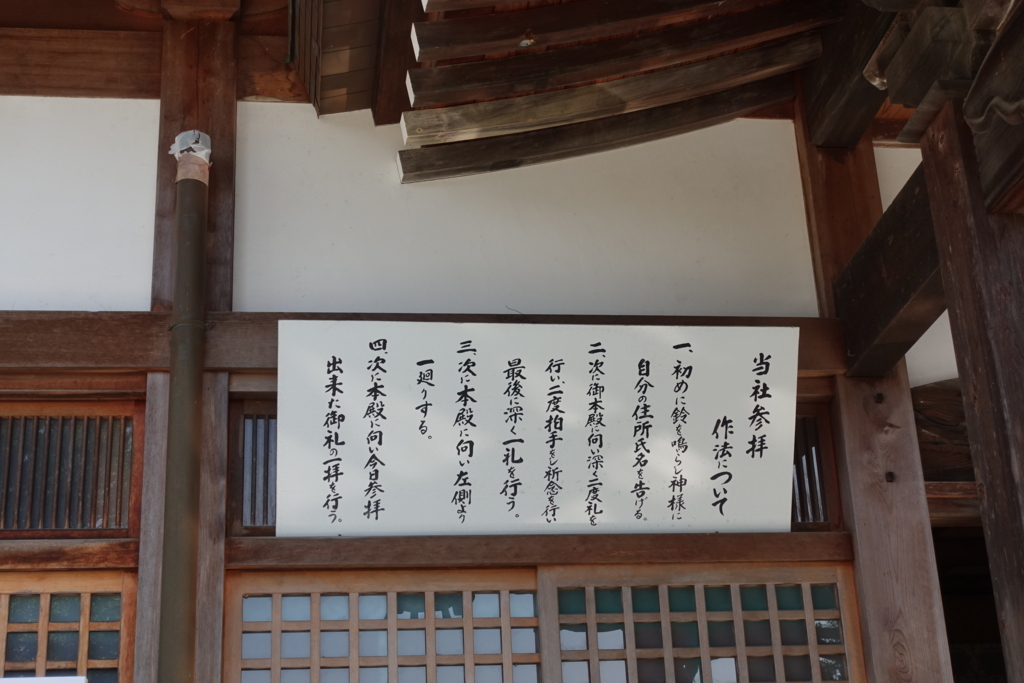 当社参拝
作法について
一、初めに鈴を鳴らし神様に
自分の住所氏名を告げる。
二、次に御本殿に向い深く二度礼を
行い、二度拍手をし祈念を行い
最後に深く一礼を行う。
三、次に本殿に向い左側より
一廻りする。
四、次に本殿に向い今日参拝
出来た御礼の一拝を行う。